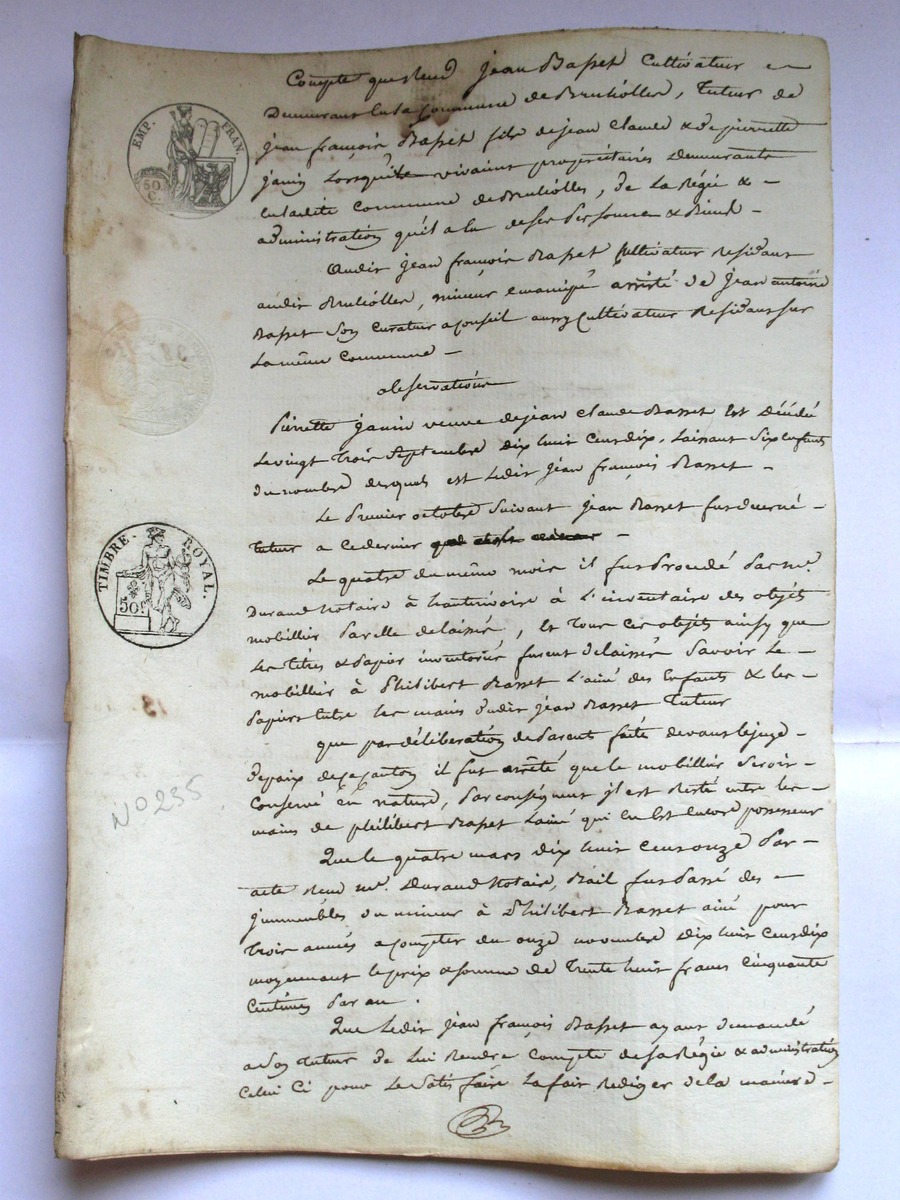 Compte que rend jean Basset Cultivateur
Demeurant en la Commune de Brulliolles, tuteur de
jean françois Basset fils de jean Claude & de pierrette
janin Lorsqu'ils vivaient propriétaires demeurants
en ladite Commune de Brulliolles, de La Régie &
administration qu'il a eu de ses Personne & Biens
Audit jean françois Basset Cultivateur Residant
audit Brulliolles, mineur emancipé assisté de jean antoine
Basset Son Curateur a conseil aussy Cultivateur Residant sur
La même Commune
observations
Pierrette janin veuve de jean Claude Basset Est décédé
Le vingt trois Septembre dix huit Cent dix, Laissant Six enfants
du nombre desquels est Ledit jean françois Basset
Le Premier octobre Suivant jean Basset fut decerné
tuteur a ce dernier
Le quatre du même mois il fut Procedé Par me.
Durand Notaire à hauterivoire à L'inventaire des objets
mobillier Par elle delaissé, Et tous ces objets ainsy que
Les titres & Papier inventoriés furent delaissé Savoir Le
mobillier à Philibert Basset L'ainé des Enfants & les
Papiers entre les mains dudit jean Basset tuteur
que par déliberation de Parent faite devant le juge
de paix de ce canton il fut arrêté que le mobillier seroit
Conservé en nature, Par conséquent il est Resté entre les
mains de philibert Basset Lainé qui en Est Encore possesseur
Que le quatre mars dix huit Cent onze Par
acte Recu me. Durand Notaire, Bail fut Passé des
jmmeubles du mineur à Philibert Basset ainé pour
trois années a compter du onze novembre dix huit Cent dix
moyennant le prix & somme de trente huit francs Cinquante
Centimes Par an.
Que Ledit jean françois Basset ayant demandé
a Son tuteur de Lui Rendre Compte de sa Régie & administration
Celui Ci pour Le Satisfaire La fait Rediger de la maniere
EMP. FRAN.
50 C.
TIMBRE ROYAL.
50 C.
No 235